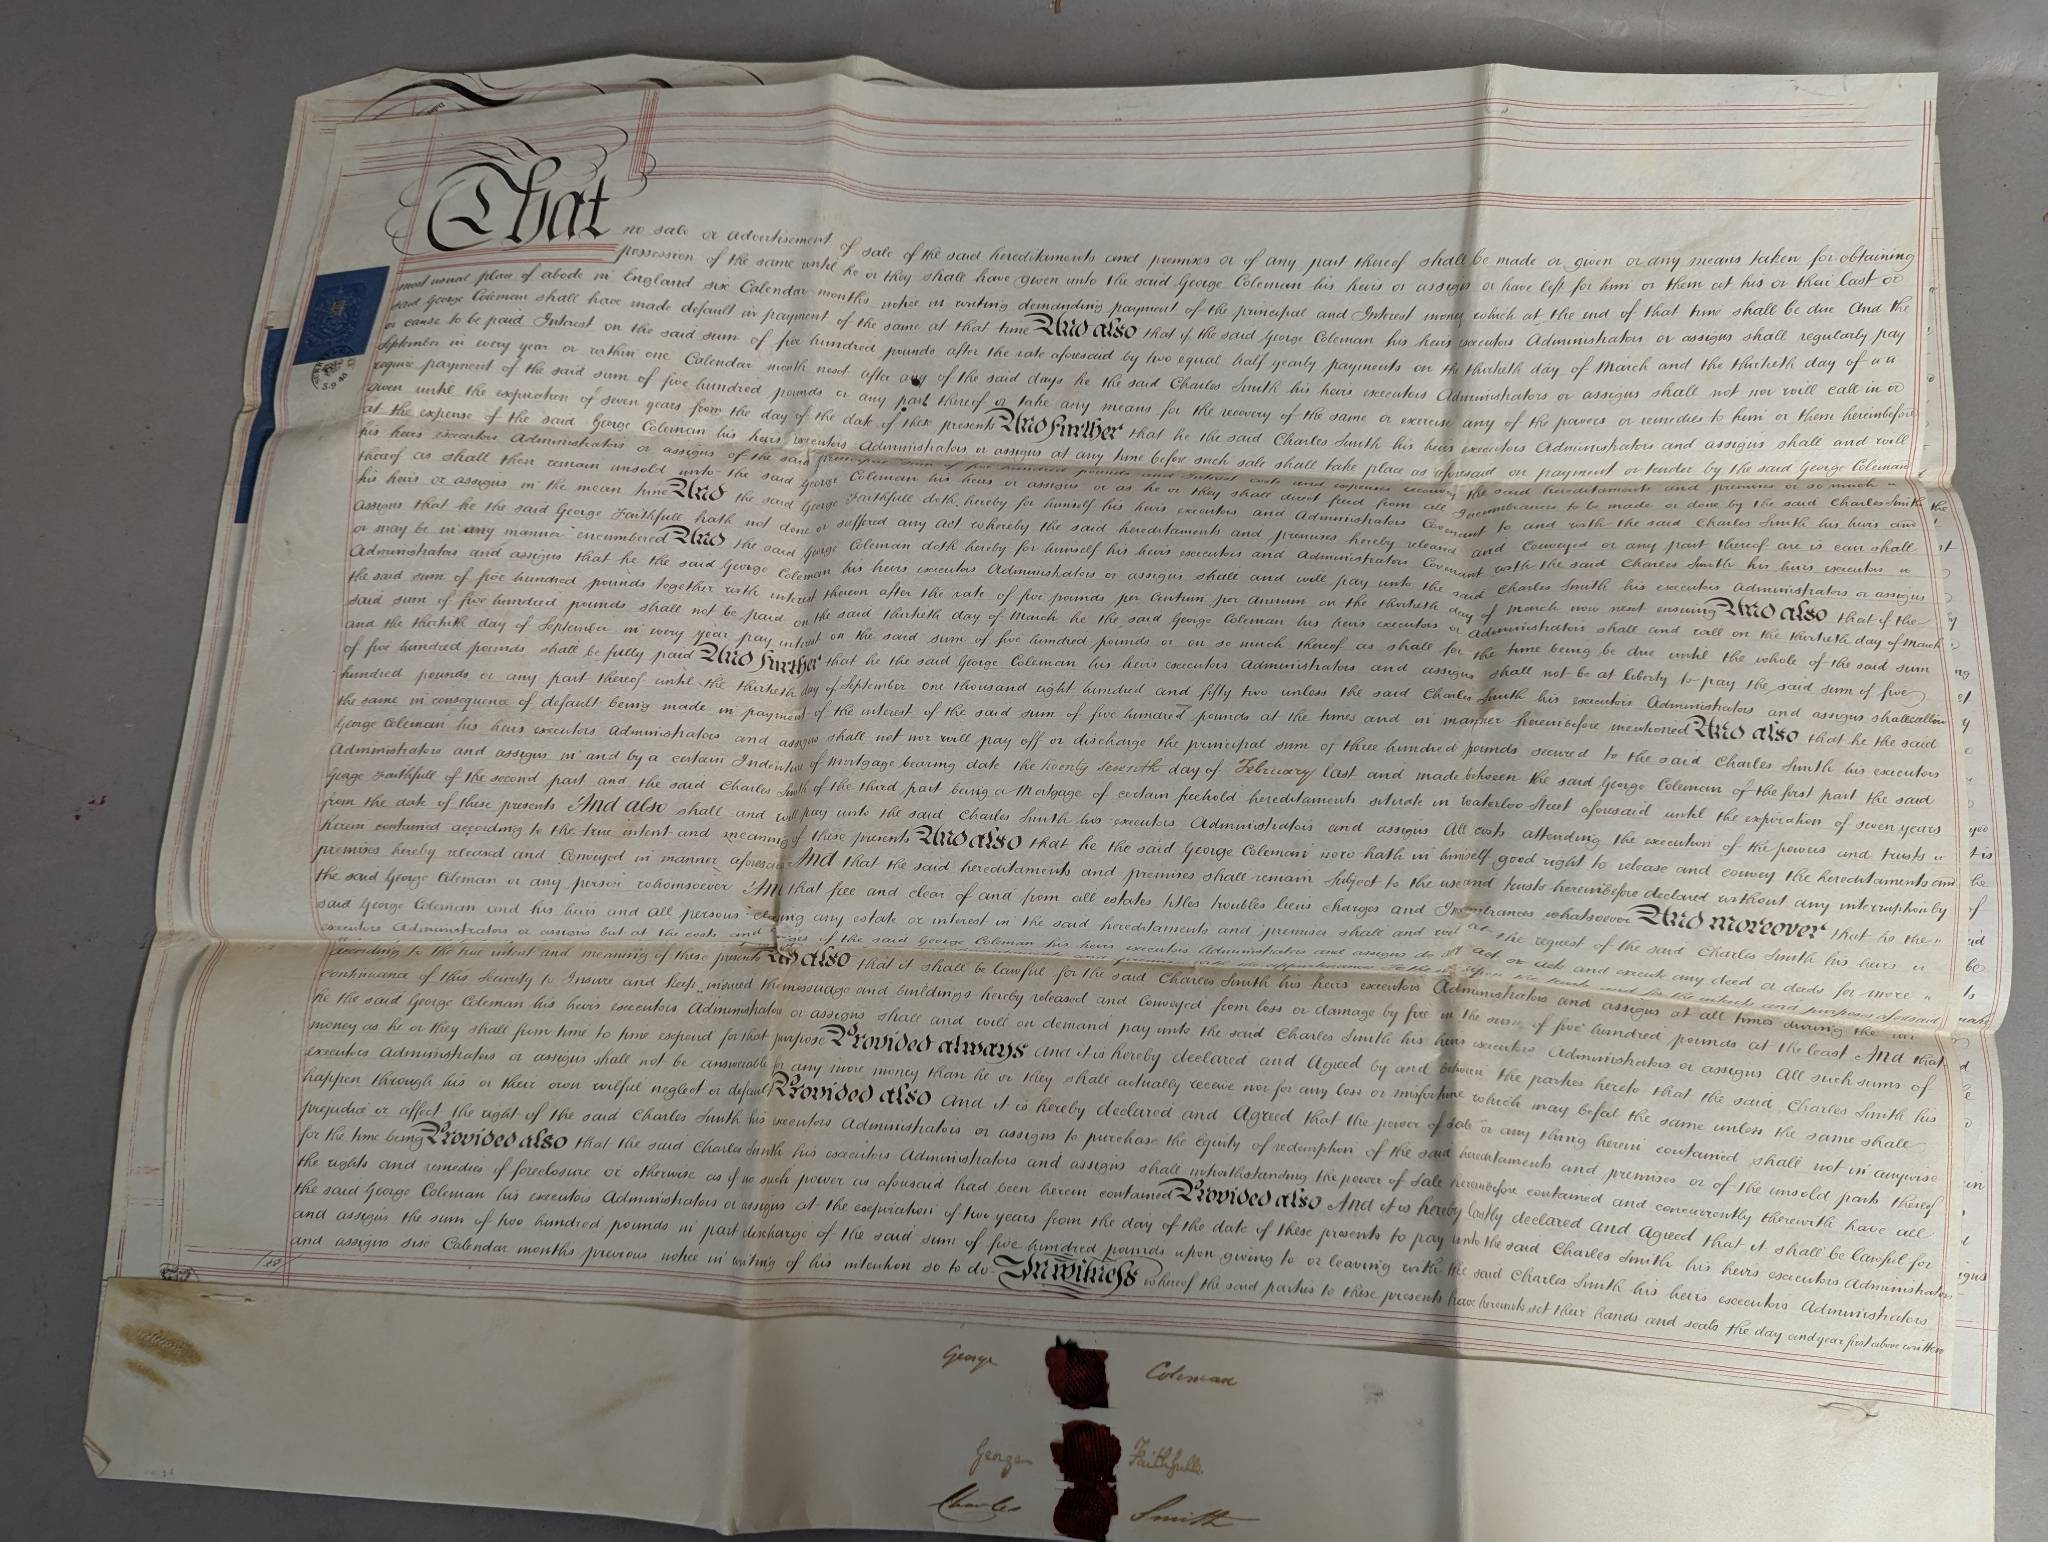 That no sale or advertisement of sale of the said hereditaments and premises or of any part thereof shall be made or given or any means taken for obtaining
possession of the same until he or they shall have given unto the said George Coleman his heirs or assigns or have left for him or them at his or their last or
most usual place of abode in England six Calendar months notice in writing demanding payment of the principal and Interest money which at the end of that time shall be due And the
said George Coleman shall have made default in payment of the same at that time And also that if the said George Coleman his heirs executors Administrators or assigns shall regularly pay
or cause to be paid Interest on the said sum of five hundred pounds after the rate aforesaid by two equal half yearly payments on the thirtieth day of March and the thirtieth day of
September in every year or within one Calendar month next after any of the said days he the said Charles Smith his heirs executors Administrators or assigns shall not nor will call in or
require payment of the said sum of five hundred pounds or any part thereof or take any means for the recovery of the same or exercise any of the powers or remedies to him or them hereinbefore
given until the expiration of seven years from the day of the date of these presents And further that he the said Charles Smith his heirs executors Administrators and assigns shall and will
at the expense of the said George Coleman his heirs executors Administrators or assigns at any time before such sale shall take place as aforesaid on payment or tender by the said George Coleman
his heirs executors Administrators or assigns of the said principal sum of five hundred pounds and interest costs and expenses the said hereditaments and premises or so much
thereof as shall then remain unsold unto the said George Coleman his heirs or assigns or as he or they shall direct freed from all Incumbrances to be made or done by the said Charles Smith
his heirs or assigns in the mean time And the said George Faithfull doth hereby for himself his heirs executors and Administrators Covenant to and with the said Charles Smith his heirs and
assigns that he the said George Faithfull hath not done or suffered any Act whereby the said hereditaments and premises hereby released and Conveyed or any part thereof are is can shall
or may be in any manner encumbered And the said George Coleman doth hereby for himself his heirs executors and Administrators Covenant with the said Charles Smith his heirs executors
Administrators and assigns that he the said George Coleman his heirs executors Administrators or assigns shall and will pay unto the said Charles Smith his executors Administrators or assigns
the said sum of five hundred pounds together with interest thereon after the rate of five pounds per Centum per Annum on the thirtieth day of March now next ensuing And also that if the
said sum of five hundred pounds shall not be paid on the said thirtieth day of March he the said George Coleman his heirs executors or Administrators shall and will on the thirtieth day of March
and the thirtieth day of September in every year pay interest on the said sum of five hundred pounds or on so much thereof as shall for the time being be due until the whole of the said sum
of five hundred pounds shall be fully paid And further that he the said George Coleman his heirs executors Administrators and assigns shall not be at liberty to pay the said sum of five
hundred pounds or any part thereof until the thirtieth day of September one thousand eight hundred and fifty two unless the said Charles Smith his executors Administrators and assigns shall call in
the same in consequence of default being made in payment of the interest of the said sum of five hundred pounds at the times and in manner hereinbefore mentioned And also that he the said
George Coleman his heirs executors Administrators and assigns shall not nor will pay off or discharge the principal sum of three hundred pounds secured to the said Charles Smith his executors
Administrators and assigns in and by a certain Indenture of Mortgage bearing date the twenty seventh day of February last and made between the said George Coleman of the first part the said
George Faithfull of the second part and the said Charles Smith of the third part being a Mortgage of certain freehold hereditaments situate in Waterloo Street aforesaid until the expiration of seven years
from the date of these presents And also shall and will pay unto the said Charles Smith his executors Administrators and assigns All costs attending the execution of the powers and trusts
herein contained according to the true intent and meaning of these presents And also that he the said George Coleman now hath in himself good right to release and convey the hereditaments and
premises hereby released and Conveyed in manner aforesaid And that the said hereditaments and premises shall remain Subject to the uses and trusts hereinbefore declared without any interruption by
the said George Coleman or any person whomsoever And that free and clear of and from all estates titles troubles liens charges and Incumbrances whatsoever And moreover that he the
said George Coleman and his heirs and all persons claiming any estate or interest in the said hereditaments and premises shall and will at the request of the said Charles Smith his heirs
executors Administrators or assigns but at the costs and charges of the said George Coleman his heirs executors Administrators and assigns do all acts and execute any deed or deeds for more
according to the true intent and meaning of these presents And also that it shall be lawful for the said Charles Smith his heirs executors Administrators and assigns at all times during the
continuance of this Security to Insure and keep insured the messuage and buildings hereby released and Conveyed from loss or damage by fire in the sum of five hundred pounds at the least And that
he the said George Coleman his heirs executors Administrators or assigns shall and will on demand pay unto the said Charles Smith his heirs executors Administrators or assigns All such sums of
money as he or they shall from time to time expend for that purpose Provided always And it is hereby declared and Agreed by and between the parties hereto that the said Charles Smith his
executors Administrators or assigns shall not be answerable for any more money than he or they shall actually receive nor for any loss or misfortune which may befal the same unless the same shall
happen through his or their own wilful neglect or default Provided also And it is hereby declared and Agreed that the power of Sale or any thing herein contained shall not in anywise
prejudice or affect the right of the said Charles Smith his executors Administrators or assigns to purchase the equity of redemption of the said hereditaments and premises or of the unsold part thereof
for the time being Provided also that the said Charles Smith his executors Administrators and assigns shall notwithstanding the power of Sale hereinbefore contained and concurrently therewith have all
the rights and remedies of foreclosure or otherwise as if no such power as aforesaid had been herein contained Provided also And it is hereby lastly declared and Agreed that it shall be lawful for
the said George Coleman his executors Administrators or assigns at the expiration of two years from the day of the date of these presents to pay unto the said Charles Smith his heirs executors Administrators
and assigns the sum of two hundred pounds in part discharge of the said sum of five hundred pounds upon giving to or leaving with the said Charles Smith his heirs executors Administrators
and assigns six Calendar months previous notice in writing of his intention so to do In witness whereof the said parties to these presents have hereunto set their hands and seals the day and year first above written
George Coleman
George Faithfull
Charles Smith